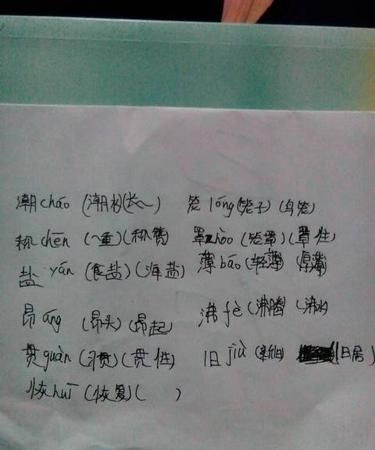 潮cháo (潮水)(长~) 笼lóng(笼子)(鸟笼)
称chēn (~重)(称赞) 罩zhào (笼罩)(罩住)
盐yán (食盐)(海盐) 薄báo(轻薄)(厚薄)
昂áng (昂头)(昂起) 沸fè(沸腾)(沸水)
贯guàn (习贯)(贯性) 旧jiù(新旧)(旧居)
恢huī (恢复)( )